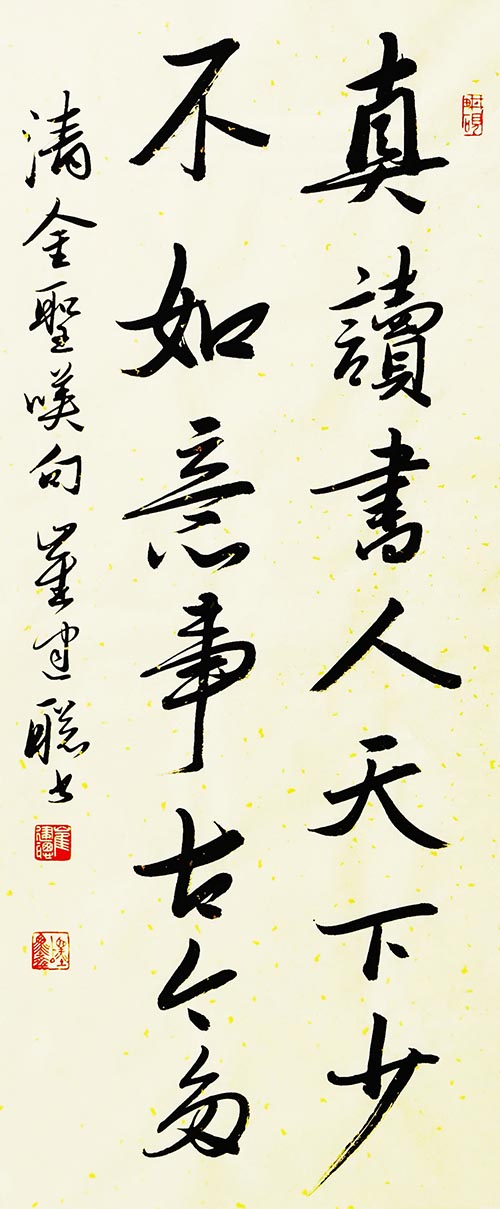 真讀書人天下少
不如意事古今多
清金聖嘆句 崔建聰書
崔建聰